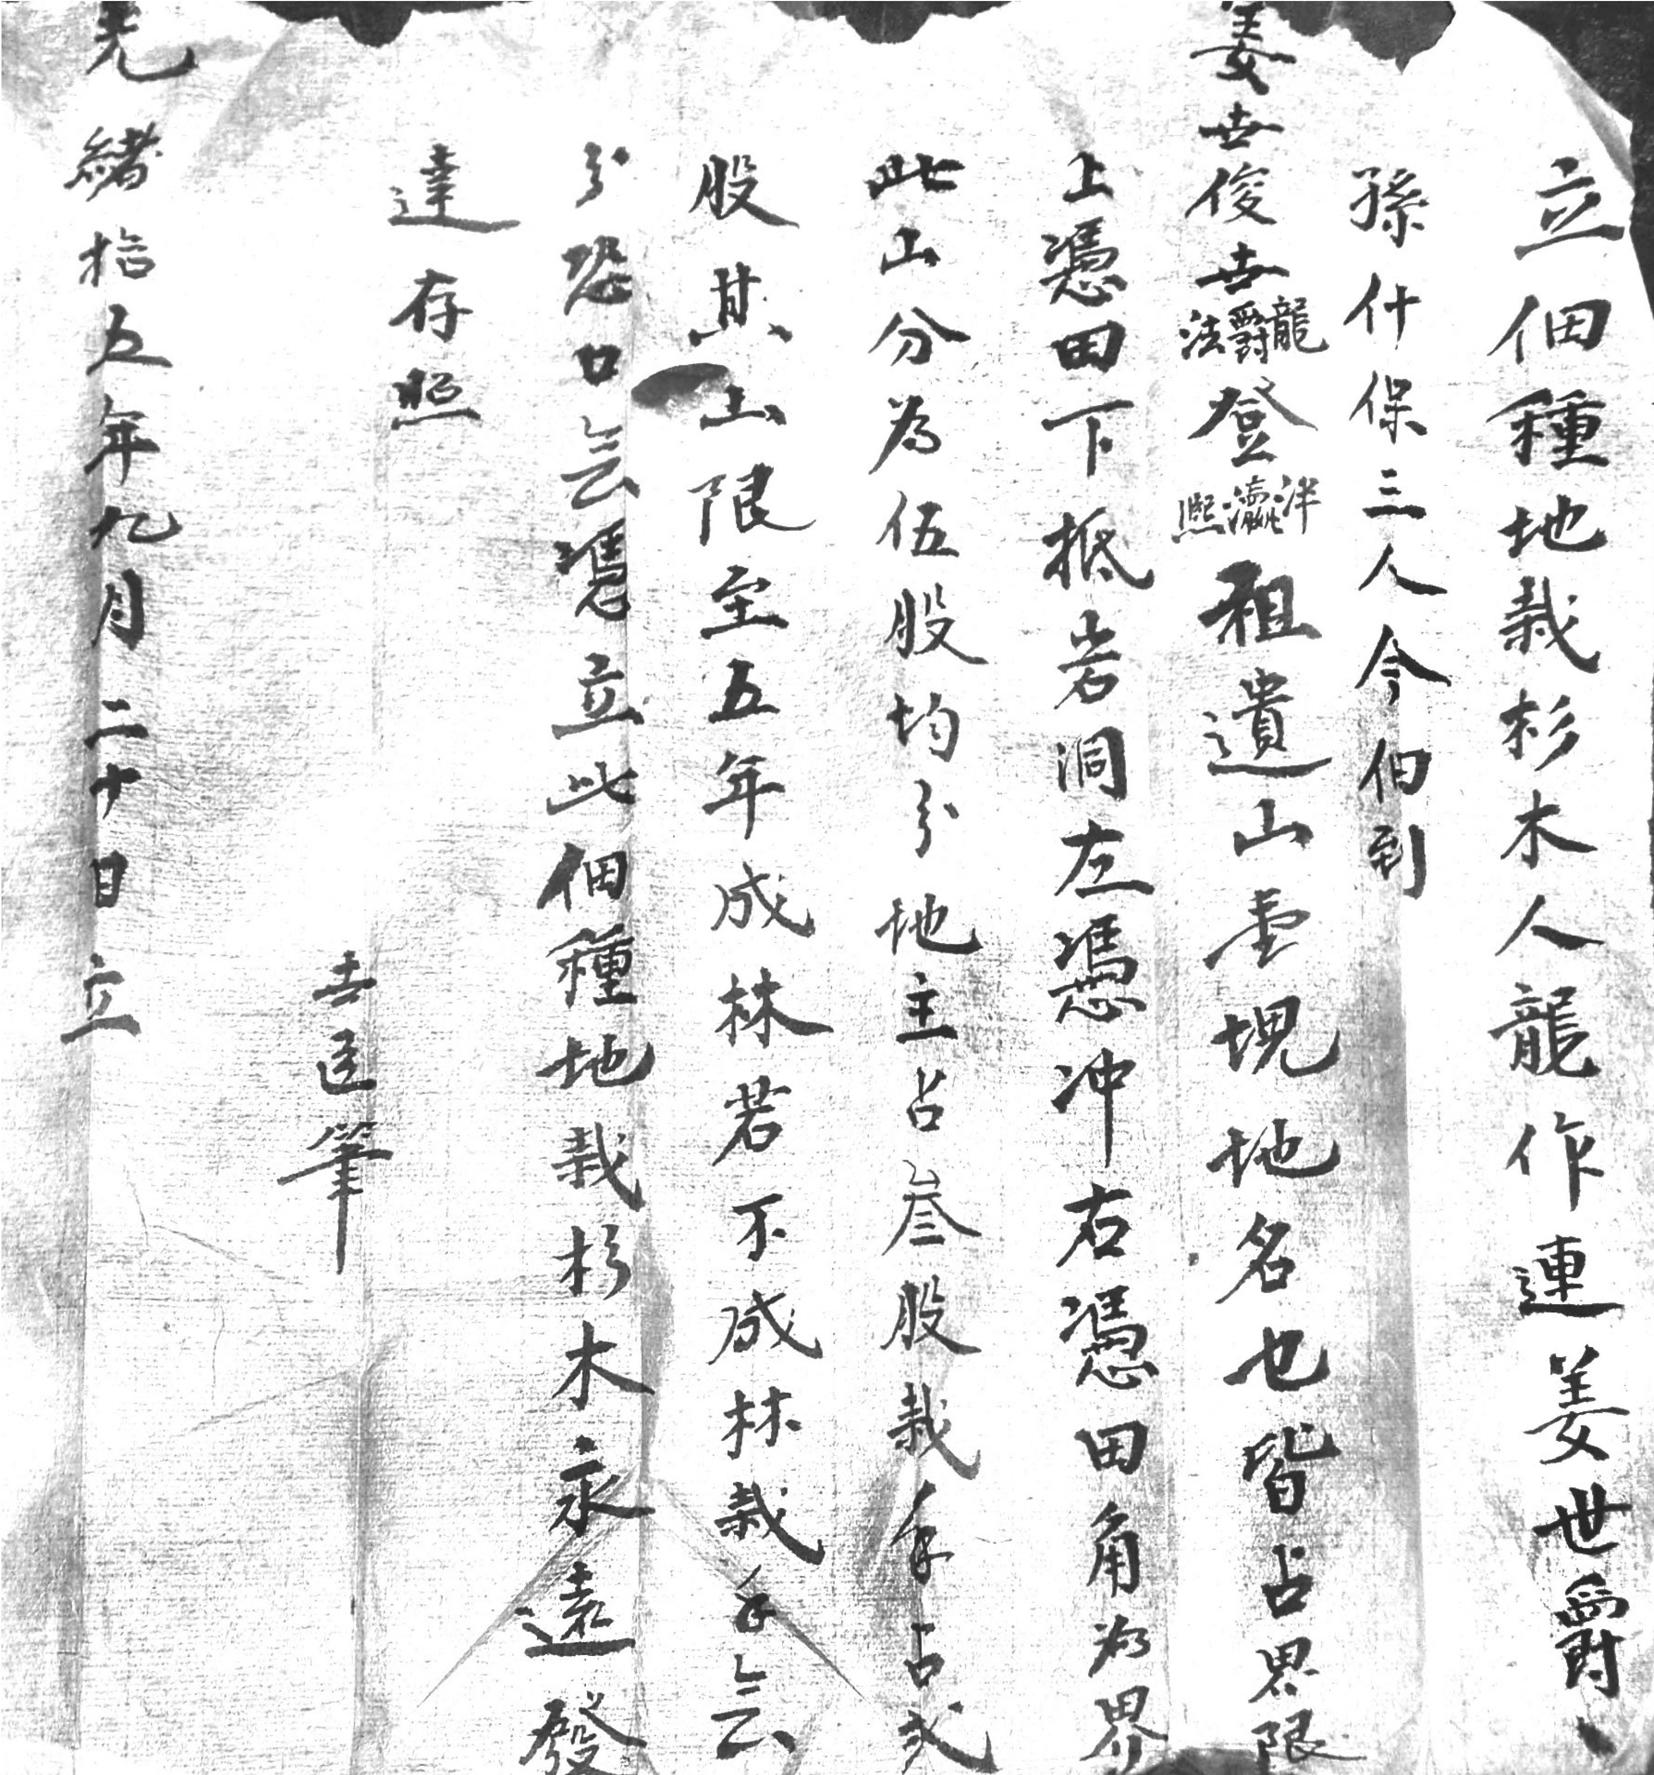 立佃種地栽杉木人龍作連姜世爵、
孫什保三人今佃到
姜世俊世龍爵法登泮瀛熙祖遺山壹塊地名也皆占界限
上憑田下抵岩洞左憑冲右憑田角為界
此山分為伍股均分地主占叁股栽手占弍
股其山限至五年成林若不成林栽手無
分恐口無憑立此佃種地栽杉木永遠發
達存照
世匡筆
光緒拾五年九月二十日立